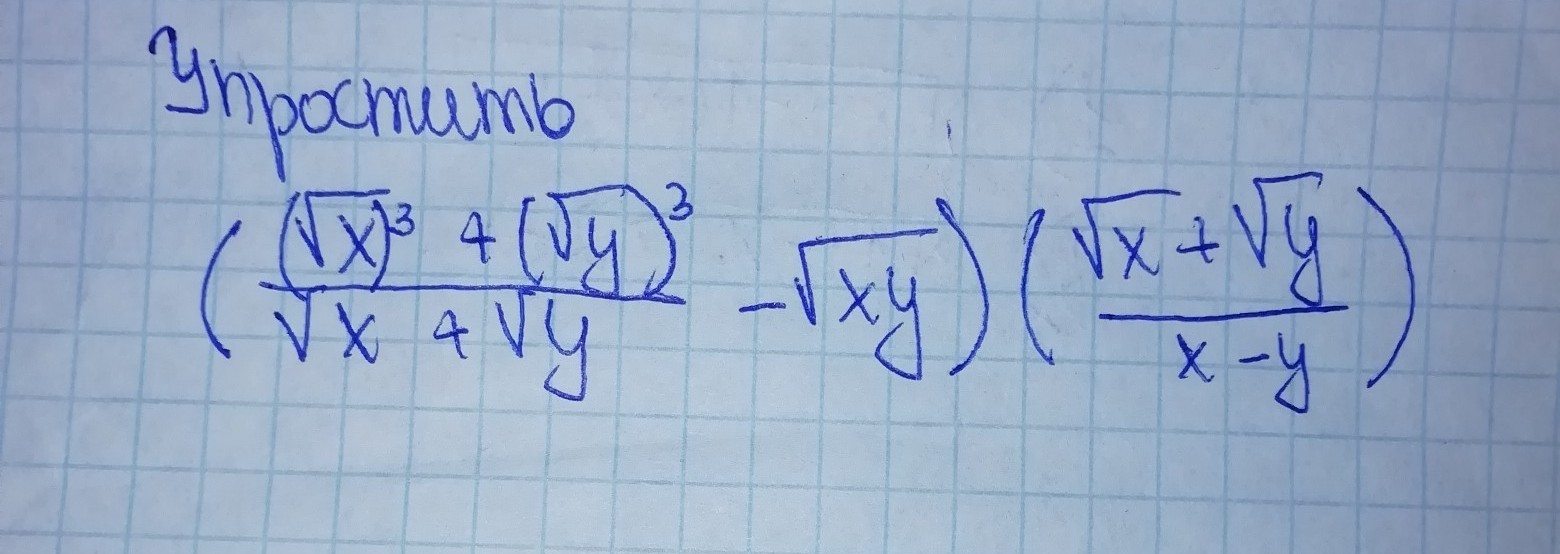 Упростить
(((√x)³ + (√y)³)/(√x + √y) - √xy)((√x + √y)/(x - y))